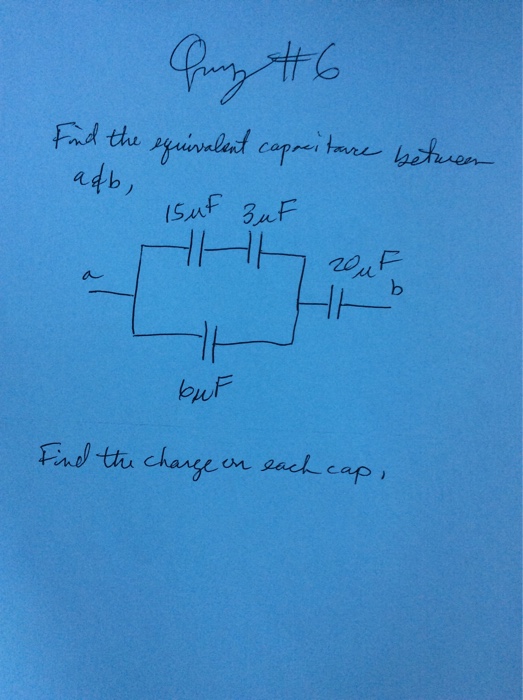 Quiz #6
Find the equivalent capacitance between
a & b,
15μF 3μF
20μF
a
b
6μF
Find the charge on each cap,